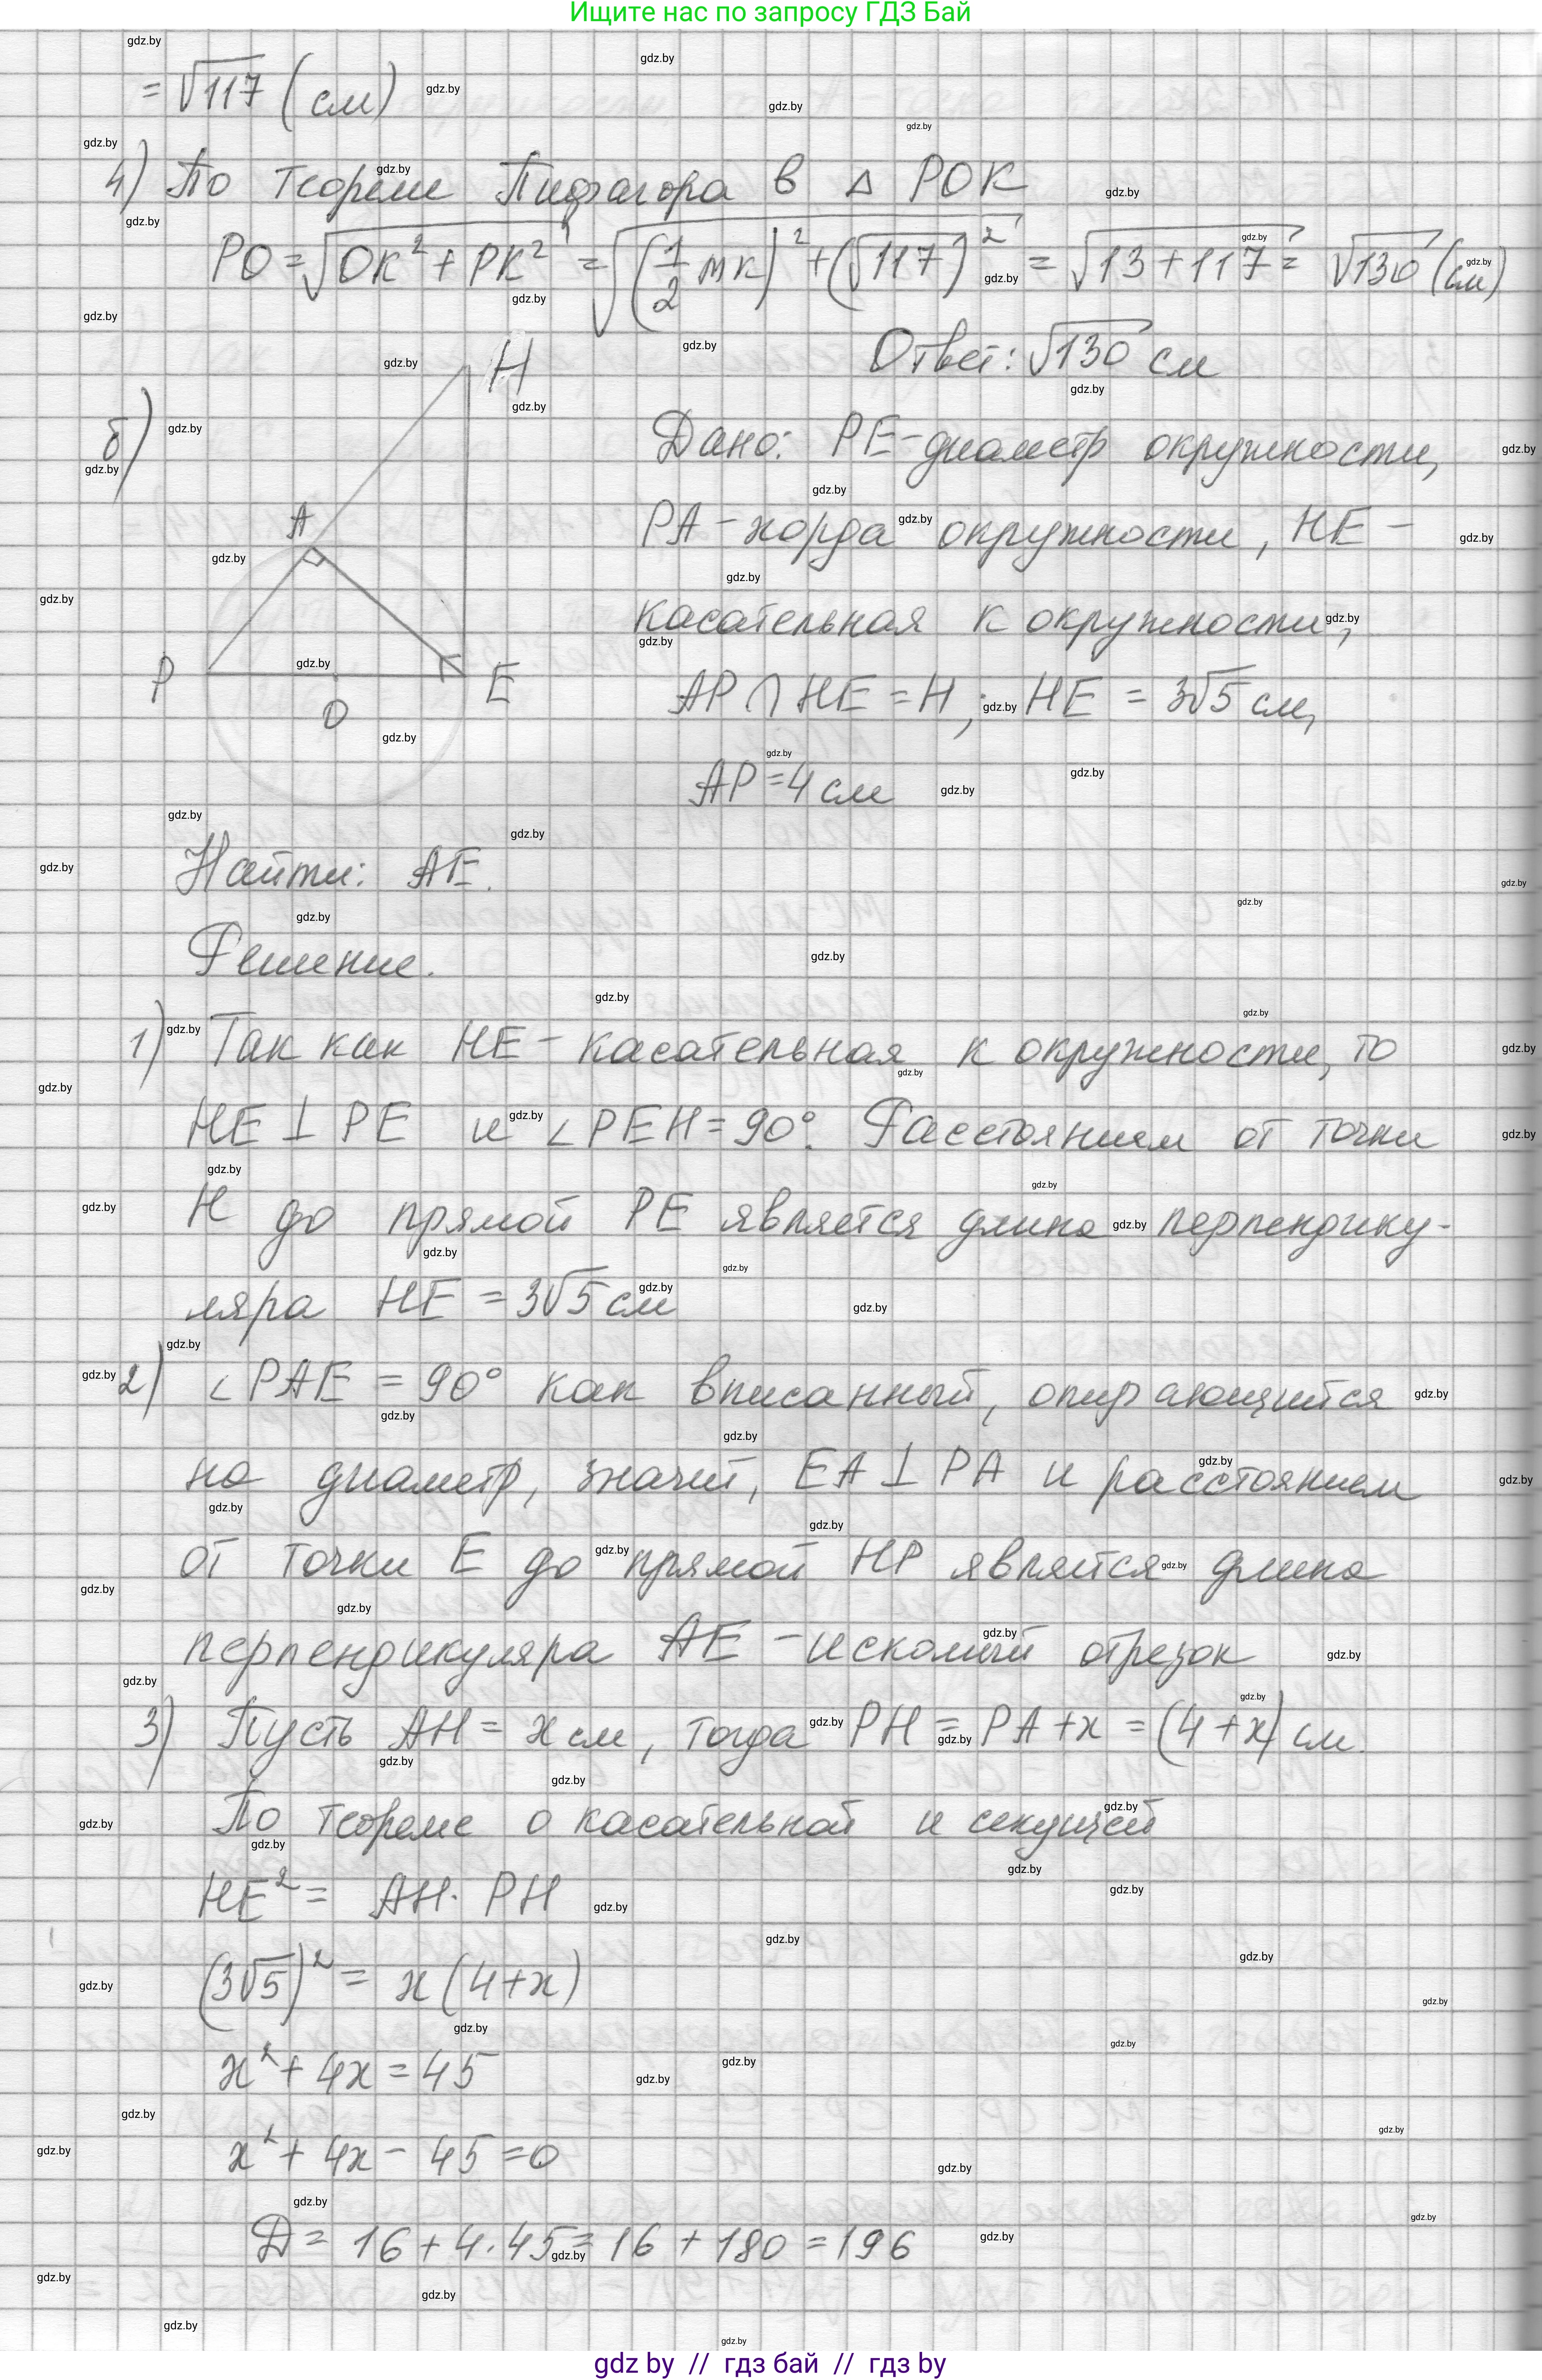 Ищите нас по запросу ГДЗ Бай
= √117 (см)
4) По теореме Пифагора в △ POK
PO = √(OK² + PK²) = √((1/2 MK)² + (√117)²) = √(13 + 117) = √130 (см)
Ответ: √130 см
б)
H
A
P
O
E
Дано: PE - диаметр окружности,
PA - хорда окружности, HE -
касательная к окружности,
AP ∩ HE = H; HE = 3√5 см,
AP = 4 см
Найти: AE.
Решение.
1) Так как HE - касательная к окружности, то
HE ⊥ PE и ∠PEH = 90°. Расстоянием от точки
H до прямой PE является длина перпендику-
ляра HE = 3√5 см
2) ∠PAE = 90° как вписанный, опирающийся
на диаметр, значит, EA ⊥ PA и расстоянием
от точки E до прямой HP является длина
перпендикуляра AE - искомый отрезок
3) Пусть AH = x см, тогда PH = PA + x = (4 + x) см.
По теореме о касательной и секущей
HE² = AH · PH
(3√5)² = x (4 + x)
x² + 4x = 45
x² + 4x - 45 = 0
D = 16 + 4 · 45 = 16 + 180 = 196
gdz by // гдз бай // гдз by